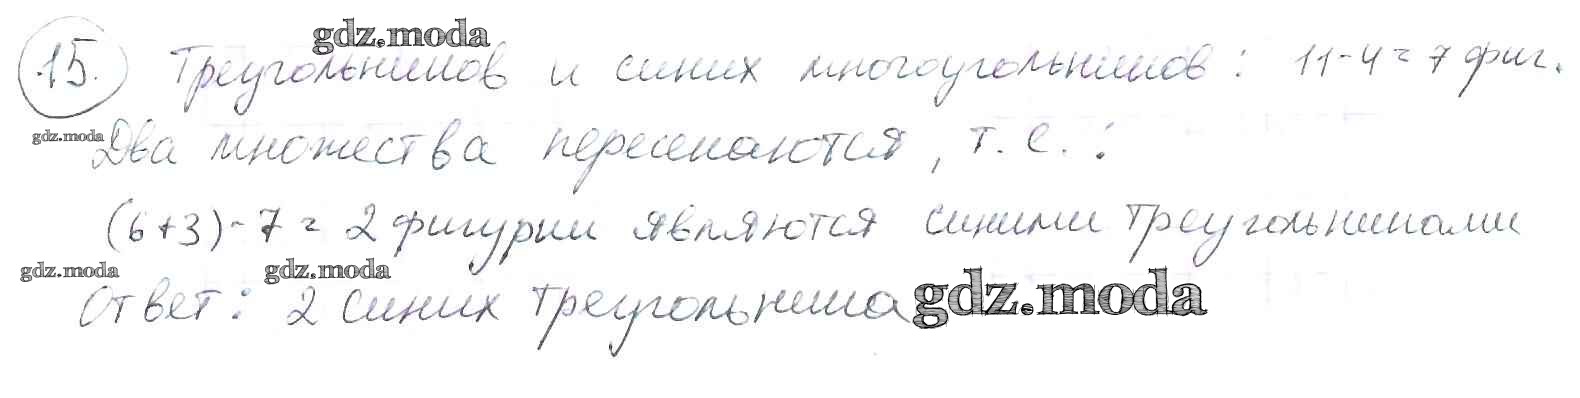 15. Треугольников и синих многоугольников: 11-4=7 фиг.
gdz.moda
gdz.moda
Два множества пересекаются, т.е.:
(6+3)-7=2 фигурки являются синими треугольниками
gdz.moda
gdz.moda
Ответ: 2 синих треугольника
gdz.moda